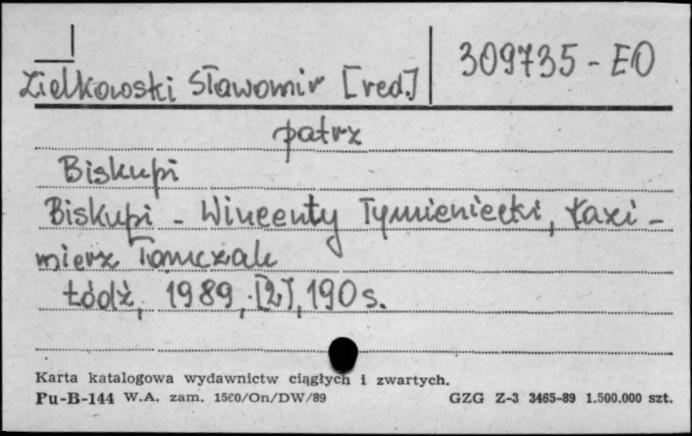 309735-EO
Zielkowski Sławomir [red.]
patrz
Biskupi
Biskupi - Wincenty Tymieniecki, Kazi-
mierz Tomczak
Łódź, 1989, [2], 190 s.
Karta katalogowa wydawnictw ciągłych i zwartych.
Pu-B-144 W.A. zam. 1500/On/DW/89 GZG Z-3 3465-89 1.500.000 szt.